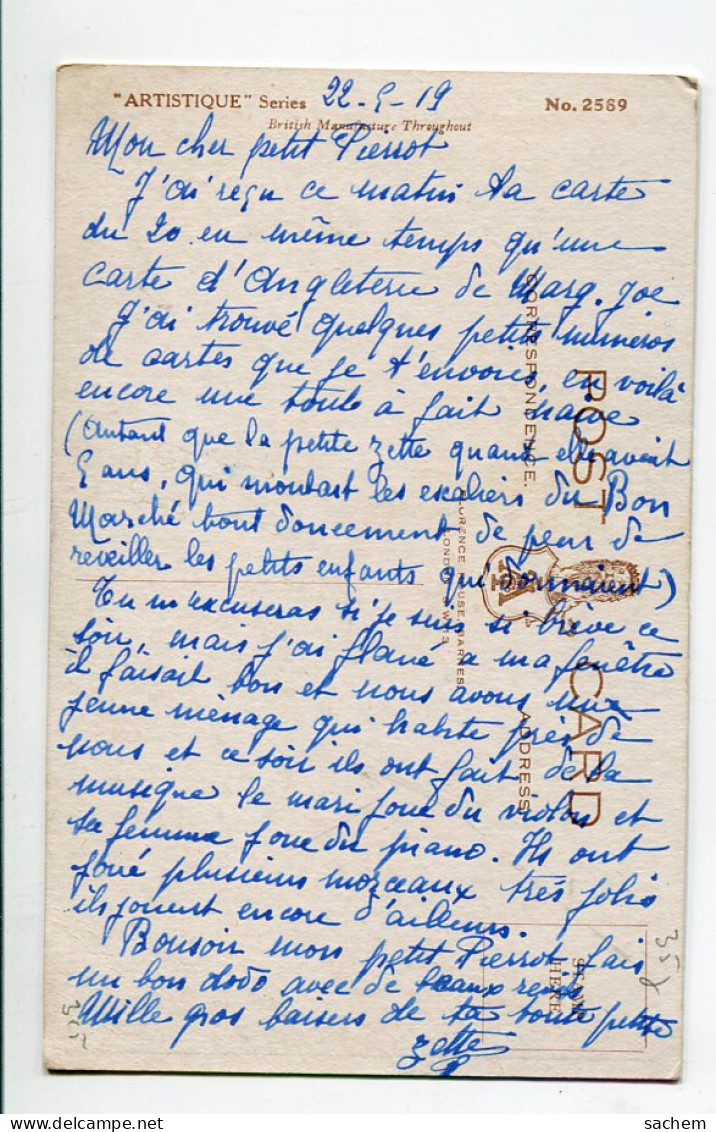 "ARTISTIQUE" Series 22-5-19 No. 2569
British Manufacture Throughout
Mon cher petit Pierrot
J'ai reçu ce matin ta carte
du 20 en même temps qu'une
carte d'Angleterre de Marg. Joe
J'ai trouvé quelques petits numéros
de cartes que je t'envoie, en voilà
encore une tout à fait naïve
(autant que la petite Zette quand elle avait
5 ans, qui montait les escaliers du Bon
Marché tout doucement de peur de
réveiller les petits enfants qui dormaient)
Tu m'excuseras si je suis si brève ce
soir, mais j'ai flané à ma fenêtre
il faisait bon et nous avons une
jeune ménage qui habite près de
nous et ce soir ils ont fait de la
musique le mari joue du violon et
sa femme joue du piano. Ils ont
joué plusieurs morceaux très jolis
ils jouent encore d'ailleurs.
Bonsoir mon petit Pierrot fais
un bon dodo avec de beaux rêves
Mille gros baisers de ta toute petite
Zette
POST CARD
CORRESPONDENCE.
ADDRESS
FLORENCE HOUSE BARNES
LONDON S.W.13
STAMP
HERE
sachem